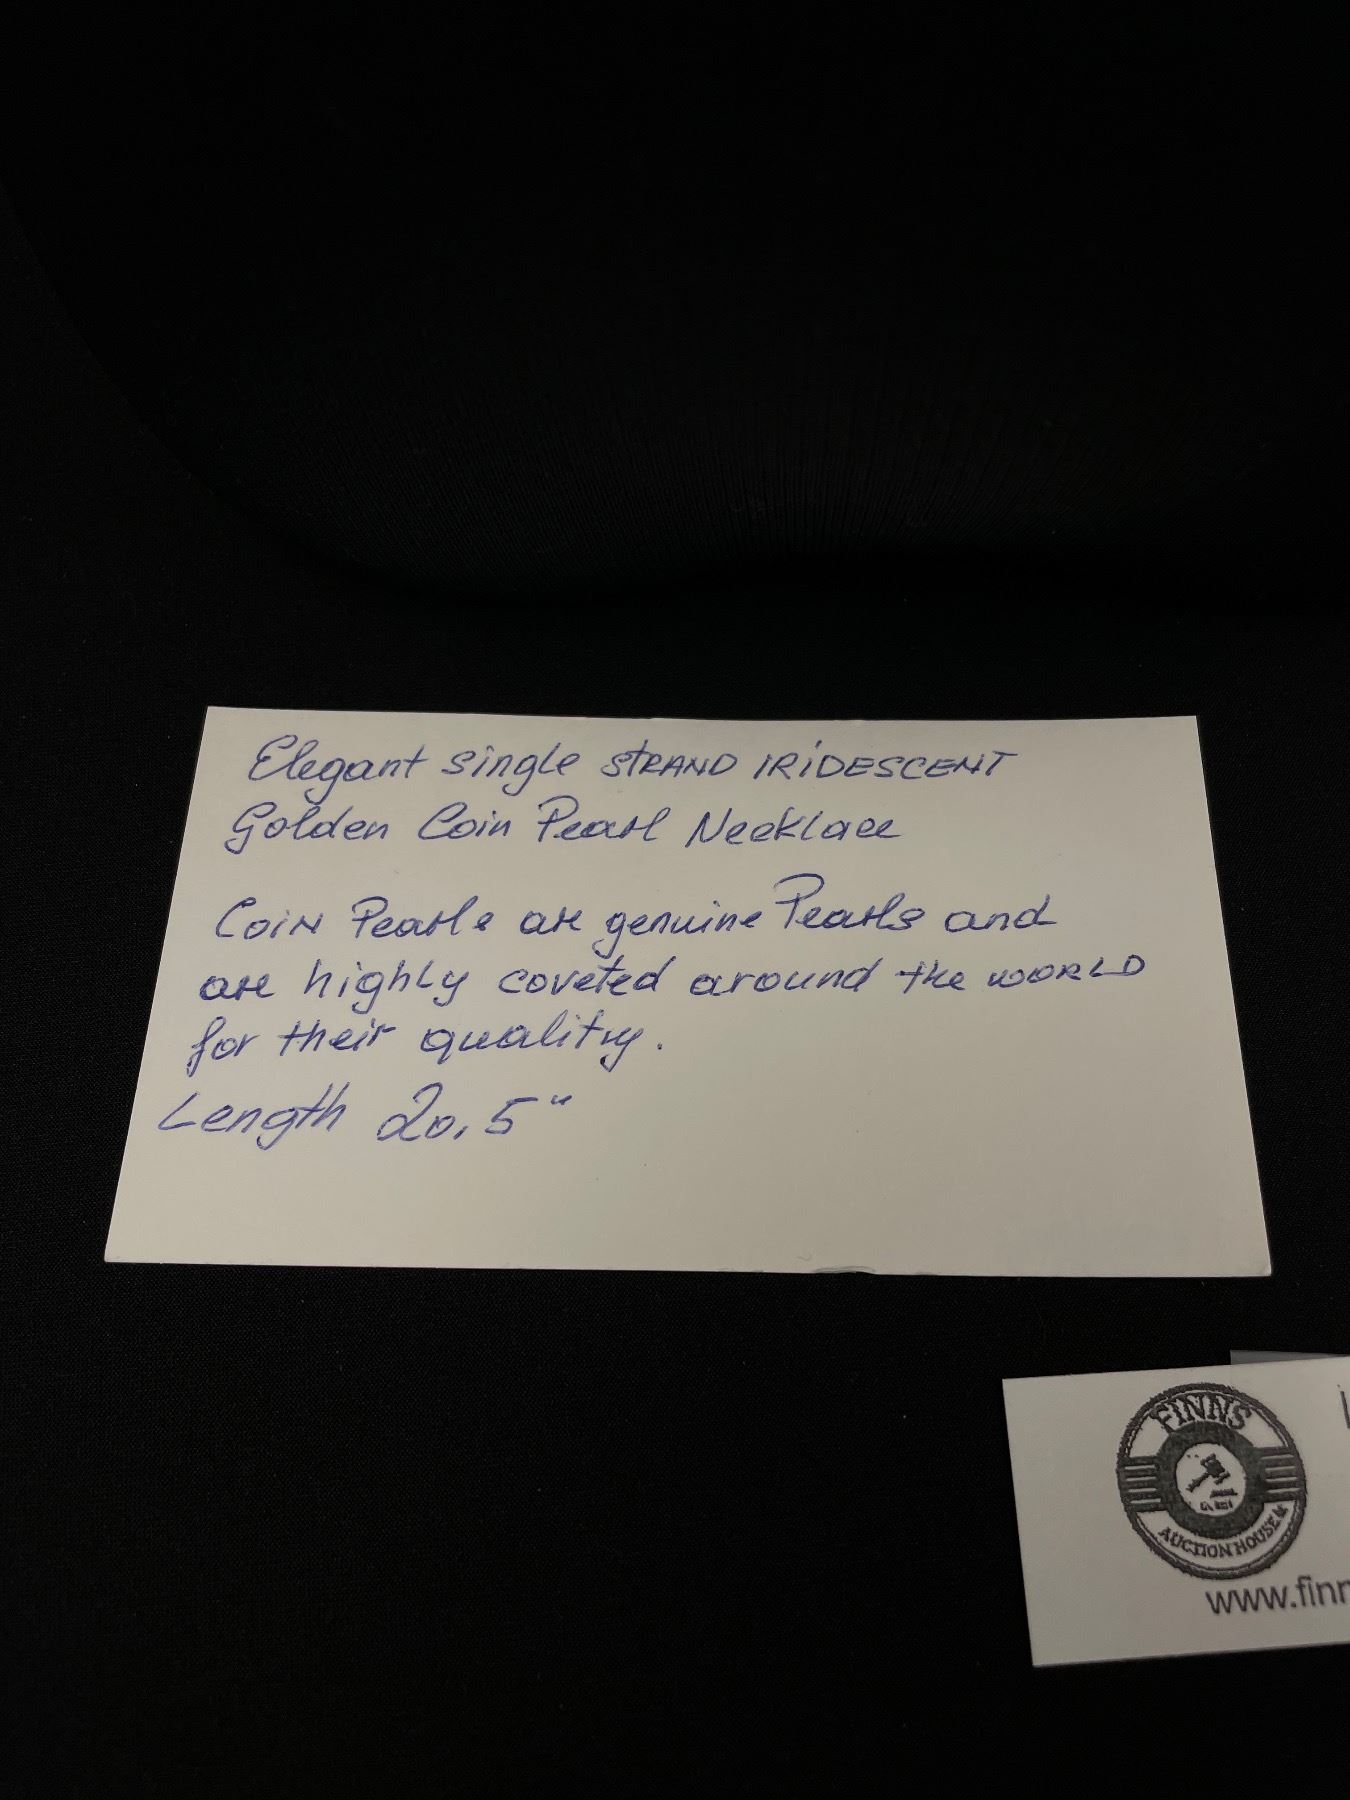 Elegant single STRAND IRIDESCENT
Golden Coin Pearl Necklace
Coin Pearls are genuine Pearls and
are highly coveted around the WORLD
for their quality.
Length 20,5"
FINNS
AUCTION HOUSE
www.finn